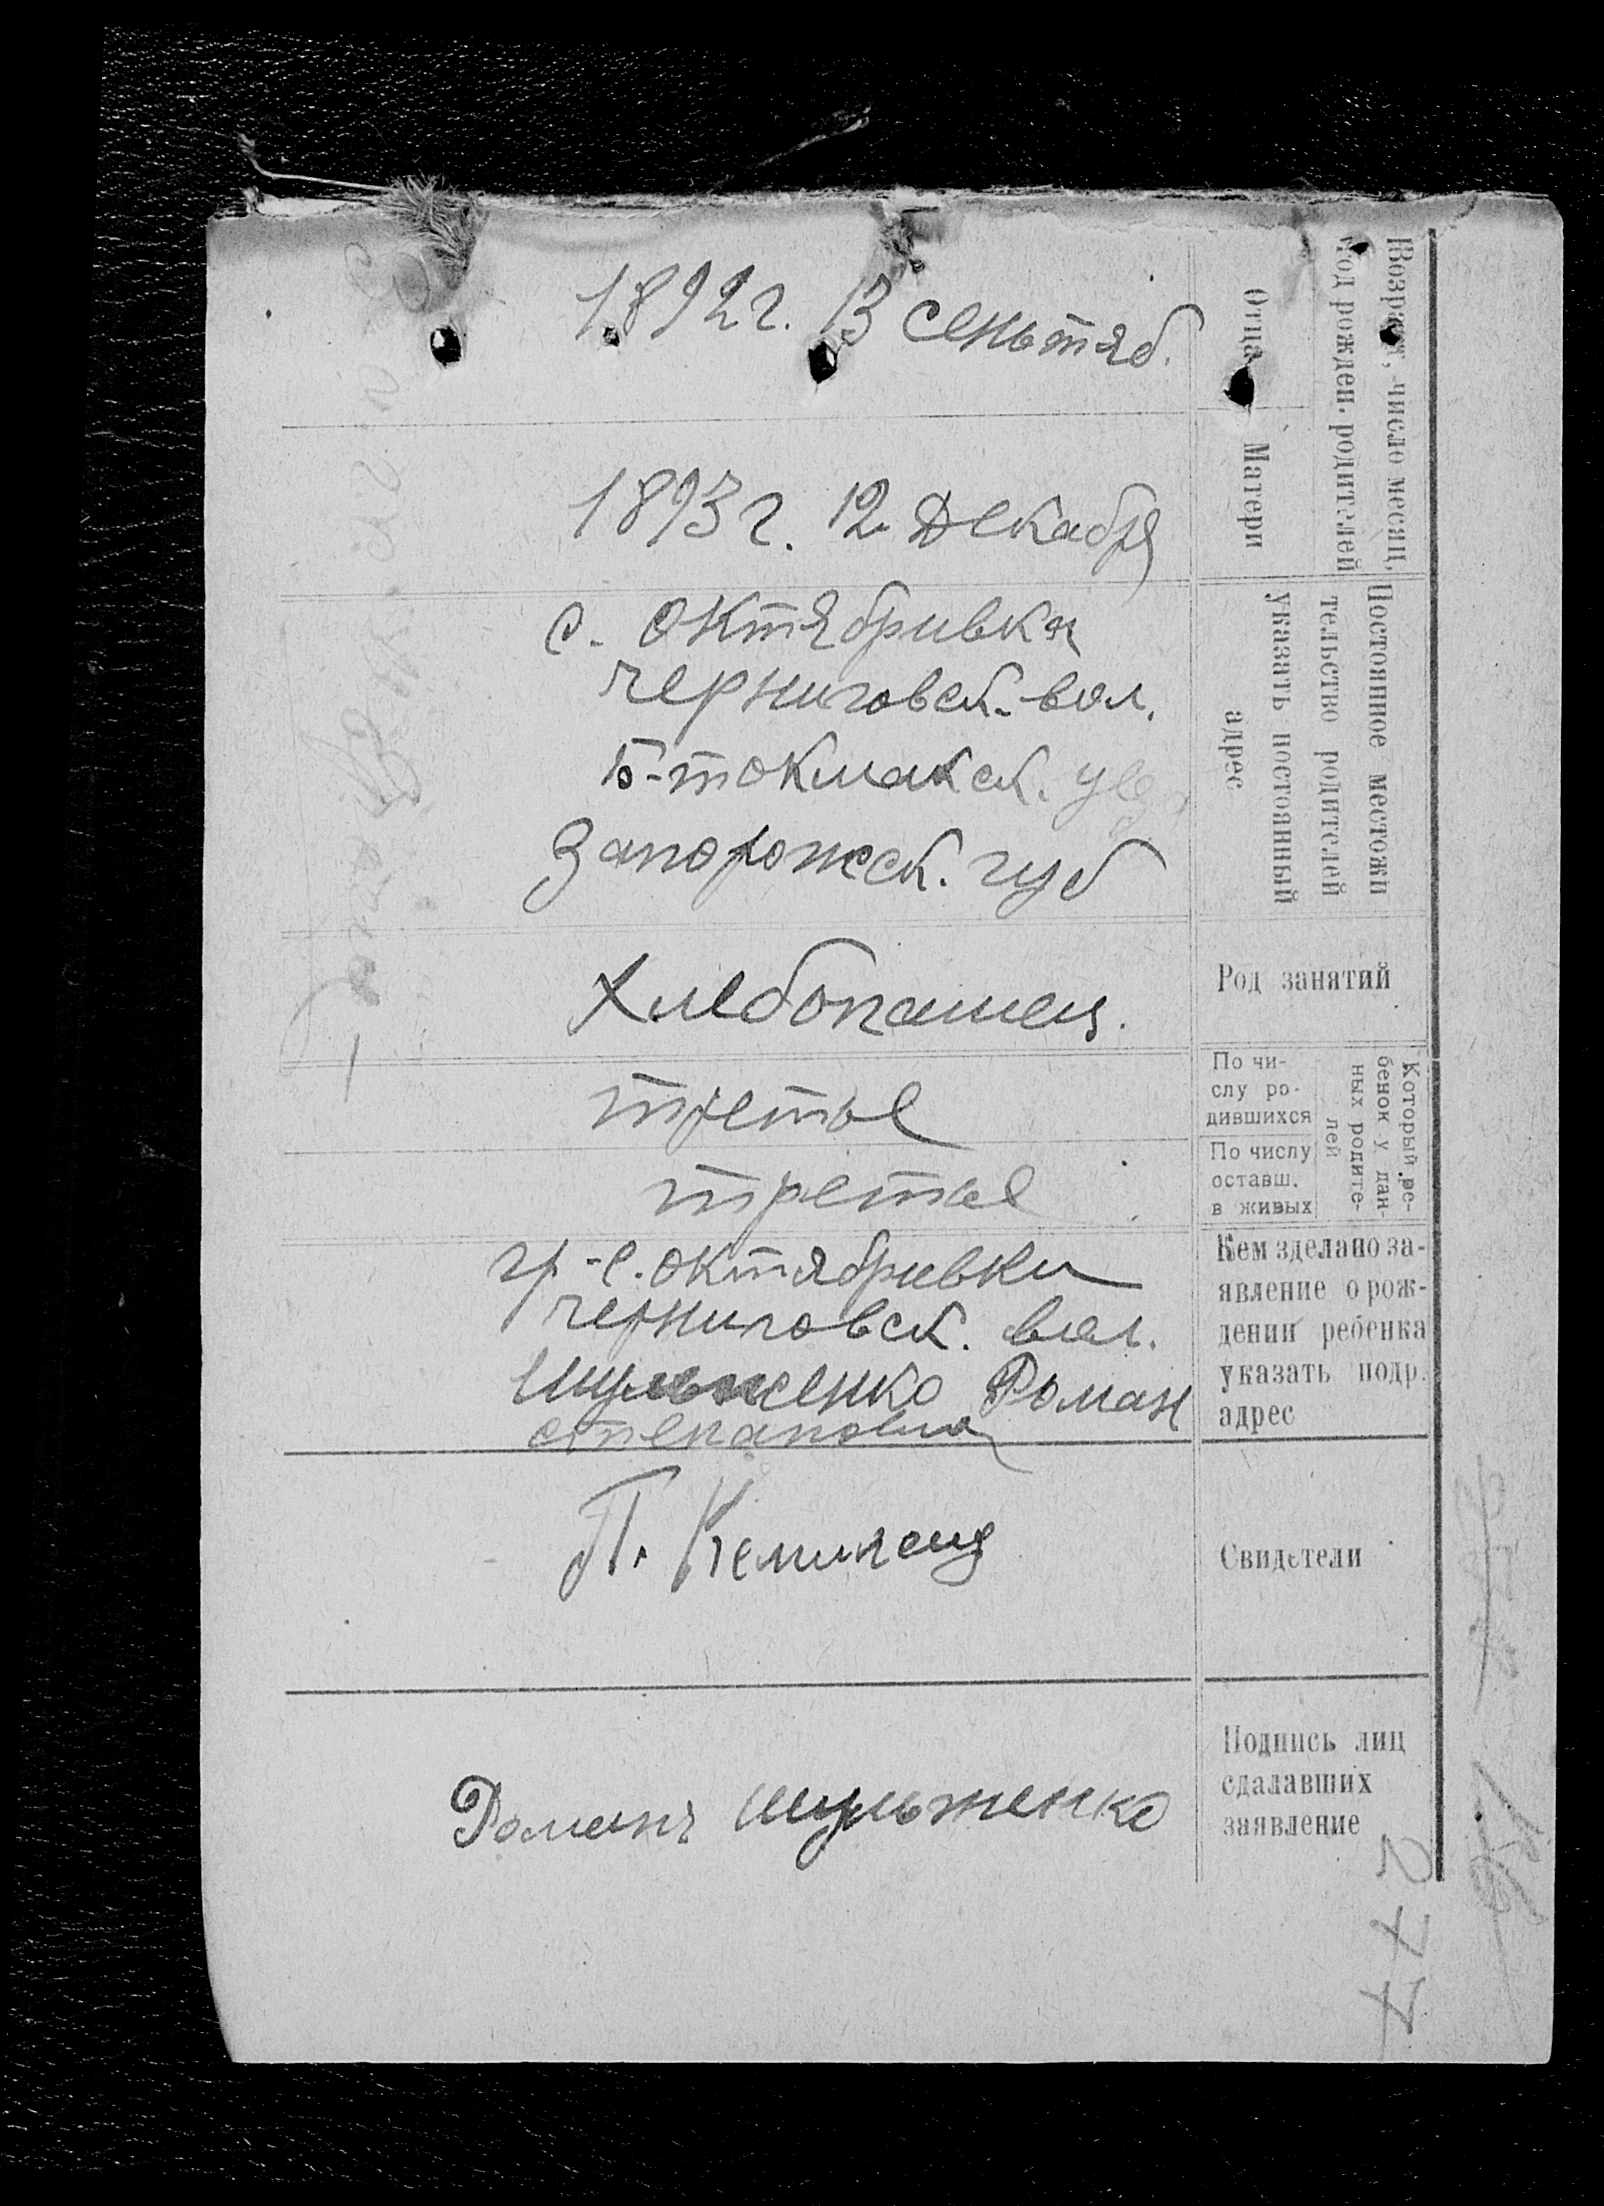 Возраст, число месяц,
год рожден. родителей
Отца
1892 г. 13 сеньтяб.
Матери
1893 г. 12 Декабря
Постоянное местожи
тельство родителей
указать постоянный
адрес
с. Октябривка
Черниговск. вол.
Б-токмакск. уез
Запорожск. губ
Род занятий
Хлебопашец.
Который ре-
бенок у дан-
ных родите-
лей
По чи-
слу ро-
дившихся
третье
По числу
оставш.
в живых
третье
Кем зделано за-
явление о рож-
дении ребенка
указать подр.
адрес
гр-с. Октябривки
Черниговск. вол.
Шульженко Роман
Степанович
Свидетели
П.
Подпись лиц
сдалавших
заявление
Романъ Шульженко
277